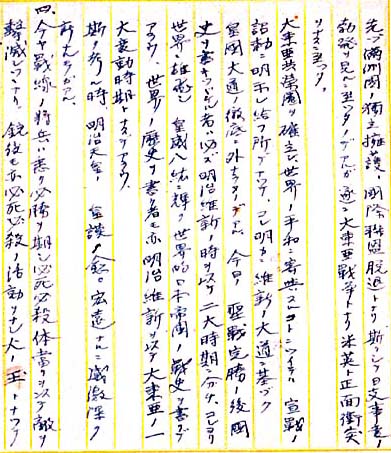 先ヅ満洲國ノ獨立擁護、國際聯盟脱退トナリ斯クシテ日支事変ノ
勃発ヲ見ルニ至ツタノデアルガ遂ニ大東亜戦争トナリ米英ト正面衝突
スルニ至ツタ。
大東亜共栄圏ヲ確立シ、世界ノ平和ニ寄與スルコトニツイテハ宣戦ノ
詔勅ニ明示シ給フ所デアツテ、コレ明カニ維新ノ大道ニ基ヅク
皇國大道ノ徹底ニ外ナラヌ 今日ノ聖戦完勝ノ後國
史ヲ書キツヾル者ハ必ズ明治維新ノ時ヲ以テ二大時期ニ分ケ、コレヨリ
世界ニ雄飛シ 皇威八紘ニ輝ク世界的日本帝國ノ戦史ヲ書ク
アラウ、世界ノ歴史ヲ書ク者モ亦明治維新ヲ以テ大東亜ノ一
大変動時期トスルデアラウ。
斯ク考ヘル時 明治天皇ノ 宏遠ナルニ感激深ク
新タデアル。
四、今ヤ戦線ノ将兵ハ悉ク必勝ヲ期シ必死必殺体当リヲ以テ敵ヲ
撃滅シツヽアリ、銃後モ亦必死必殺ノ活動ヲ